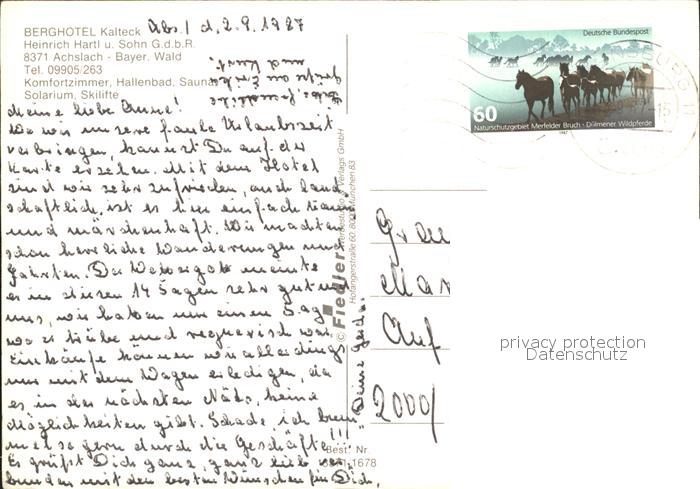 BERGHOTEL Kalteck
Heinrich Hartl u. Sohn G.d.b.R.
8371 Achslach - Bayer. Wald
Tel. 09905/263
Komfortzimmer, Hallenbad, Sauna
Solarium, Skilifte
Abs./ d. 2.9.1987
Meine liebe
Wo wir unsere faule Urlaubszeit
verbringen, kannst Du auf der
Karte ersehen. Mit dem Hotel
sind wir sehr zufrieden, auch land
schaftlich ist es hier einfach traum
und märchenhaft. Wir machten
schon herrliche Wanderungen und
Fahrten. Der Wettergott meinte
es in diesen 14 Tagen sehr gut mit
uns, wir haben nur einen Tag
wo es trübe und regnerisch war.
Einkäufe können wir allerdings
nur mit dem Wagen erledigen, da
es in der nächsten Nähe keine
Möglichkeiten gibt. Schade, ich bum
melse gern durch die Geschäfte!!!
Es grüßt Dich ganz, ganz lieb ver
bunden mit den besten Wünschen für Dich,
Deine Gerda.
© Fiedler
Werbestudio & Verlags GmbH
Hofangerstraße 60 8000 München 83
Best. Nr.
1678
Deutsche Bundespost
60
Naturschutzgebiet Merfelder Bruch - Dülmener Wildpferde
1987
Frau
Mar
Auf
2000/
privacy protection
Datenschutz